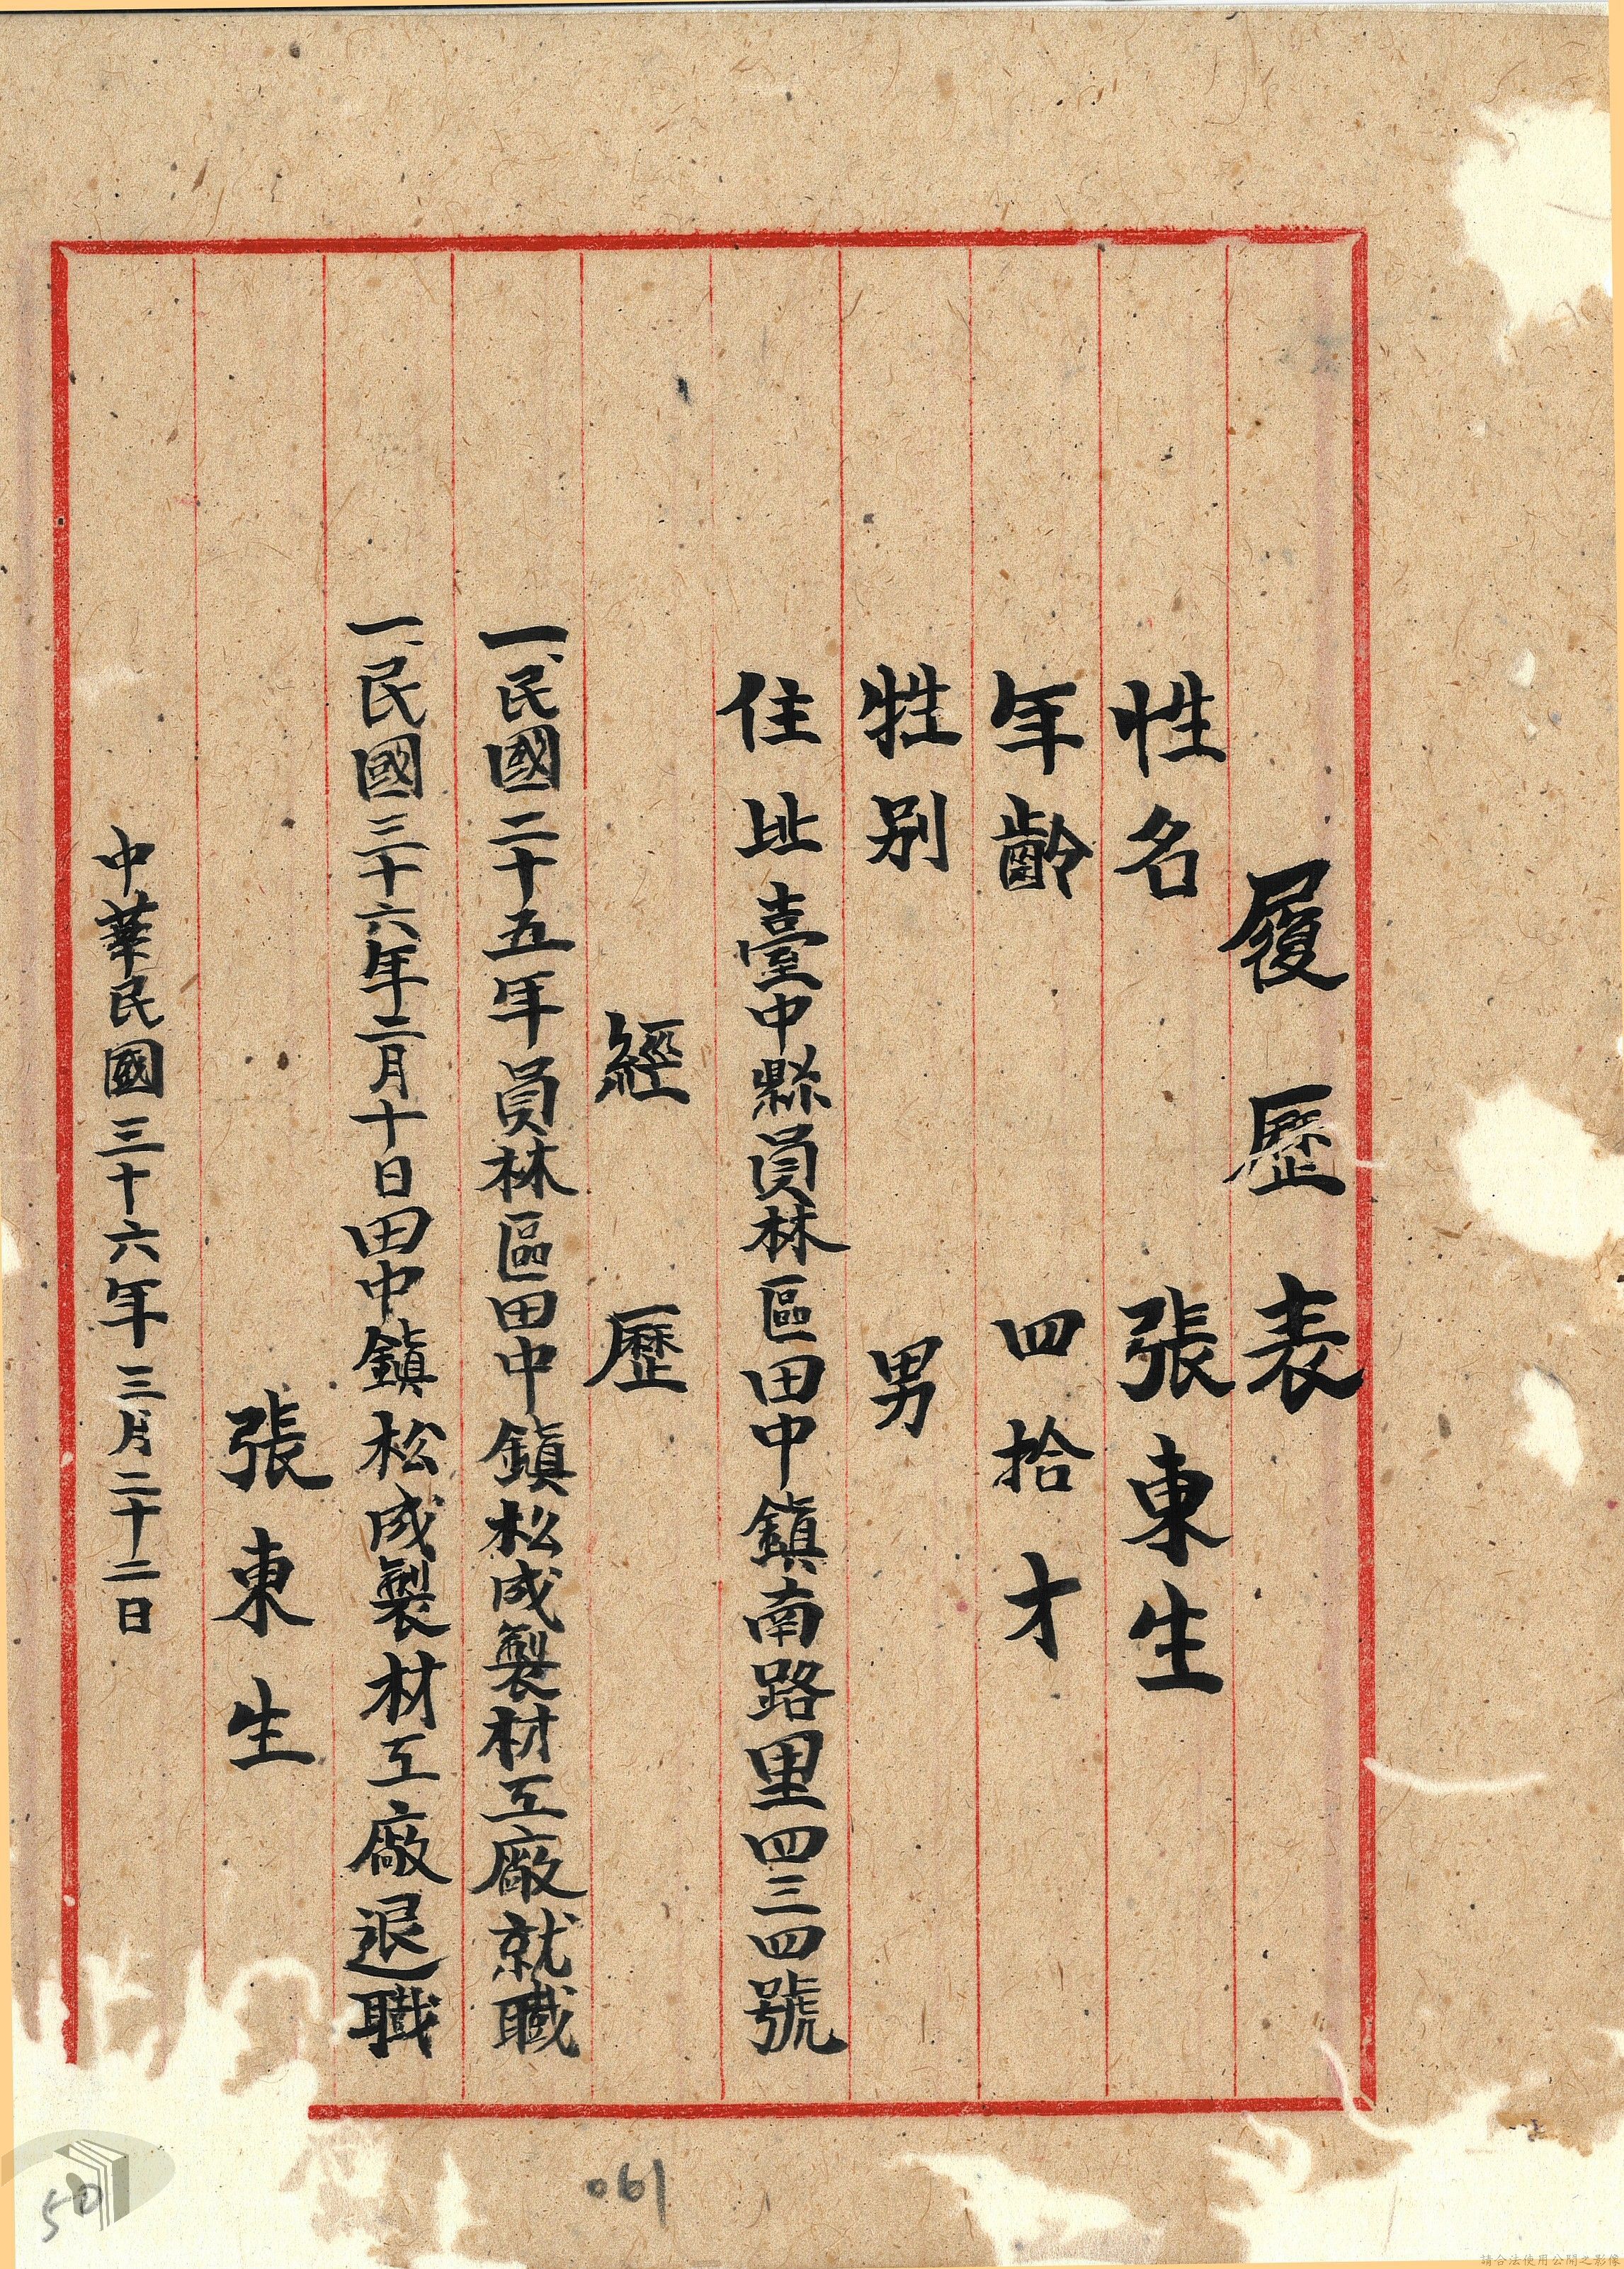 履歷表
性名 張東生
年齡 四拾才
牲别 男
住址 臺中縣員林區田中鎮南路里四三四號
經歷
一、民國二十五年員林區田中鎮松成製材工廠就職
一、民國三十六年二月十日田中鎮松成製材工廠退職
張東生
中華民國三十六年三月二十二日
061
50
請合法使用公開之影像